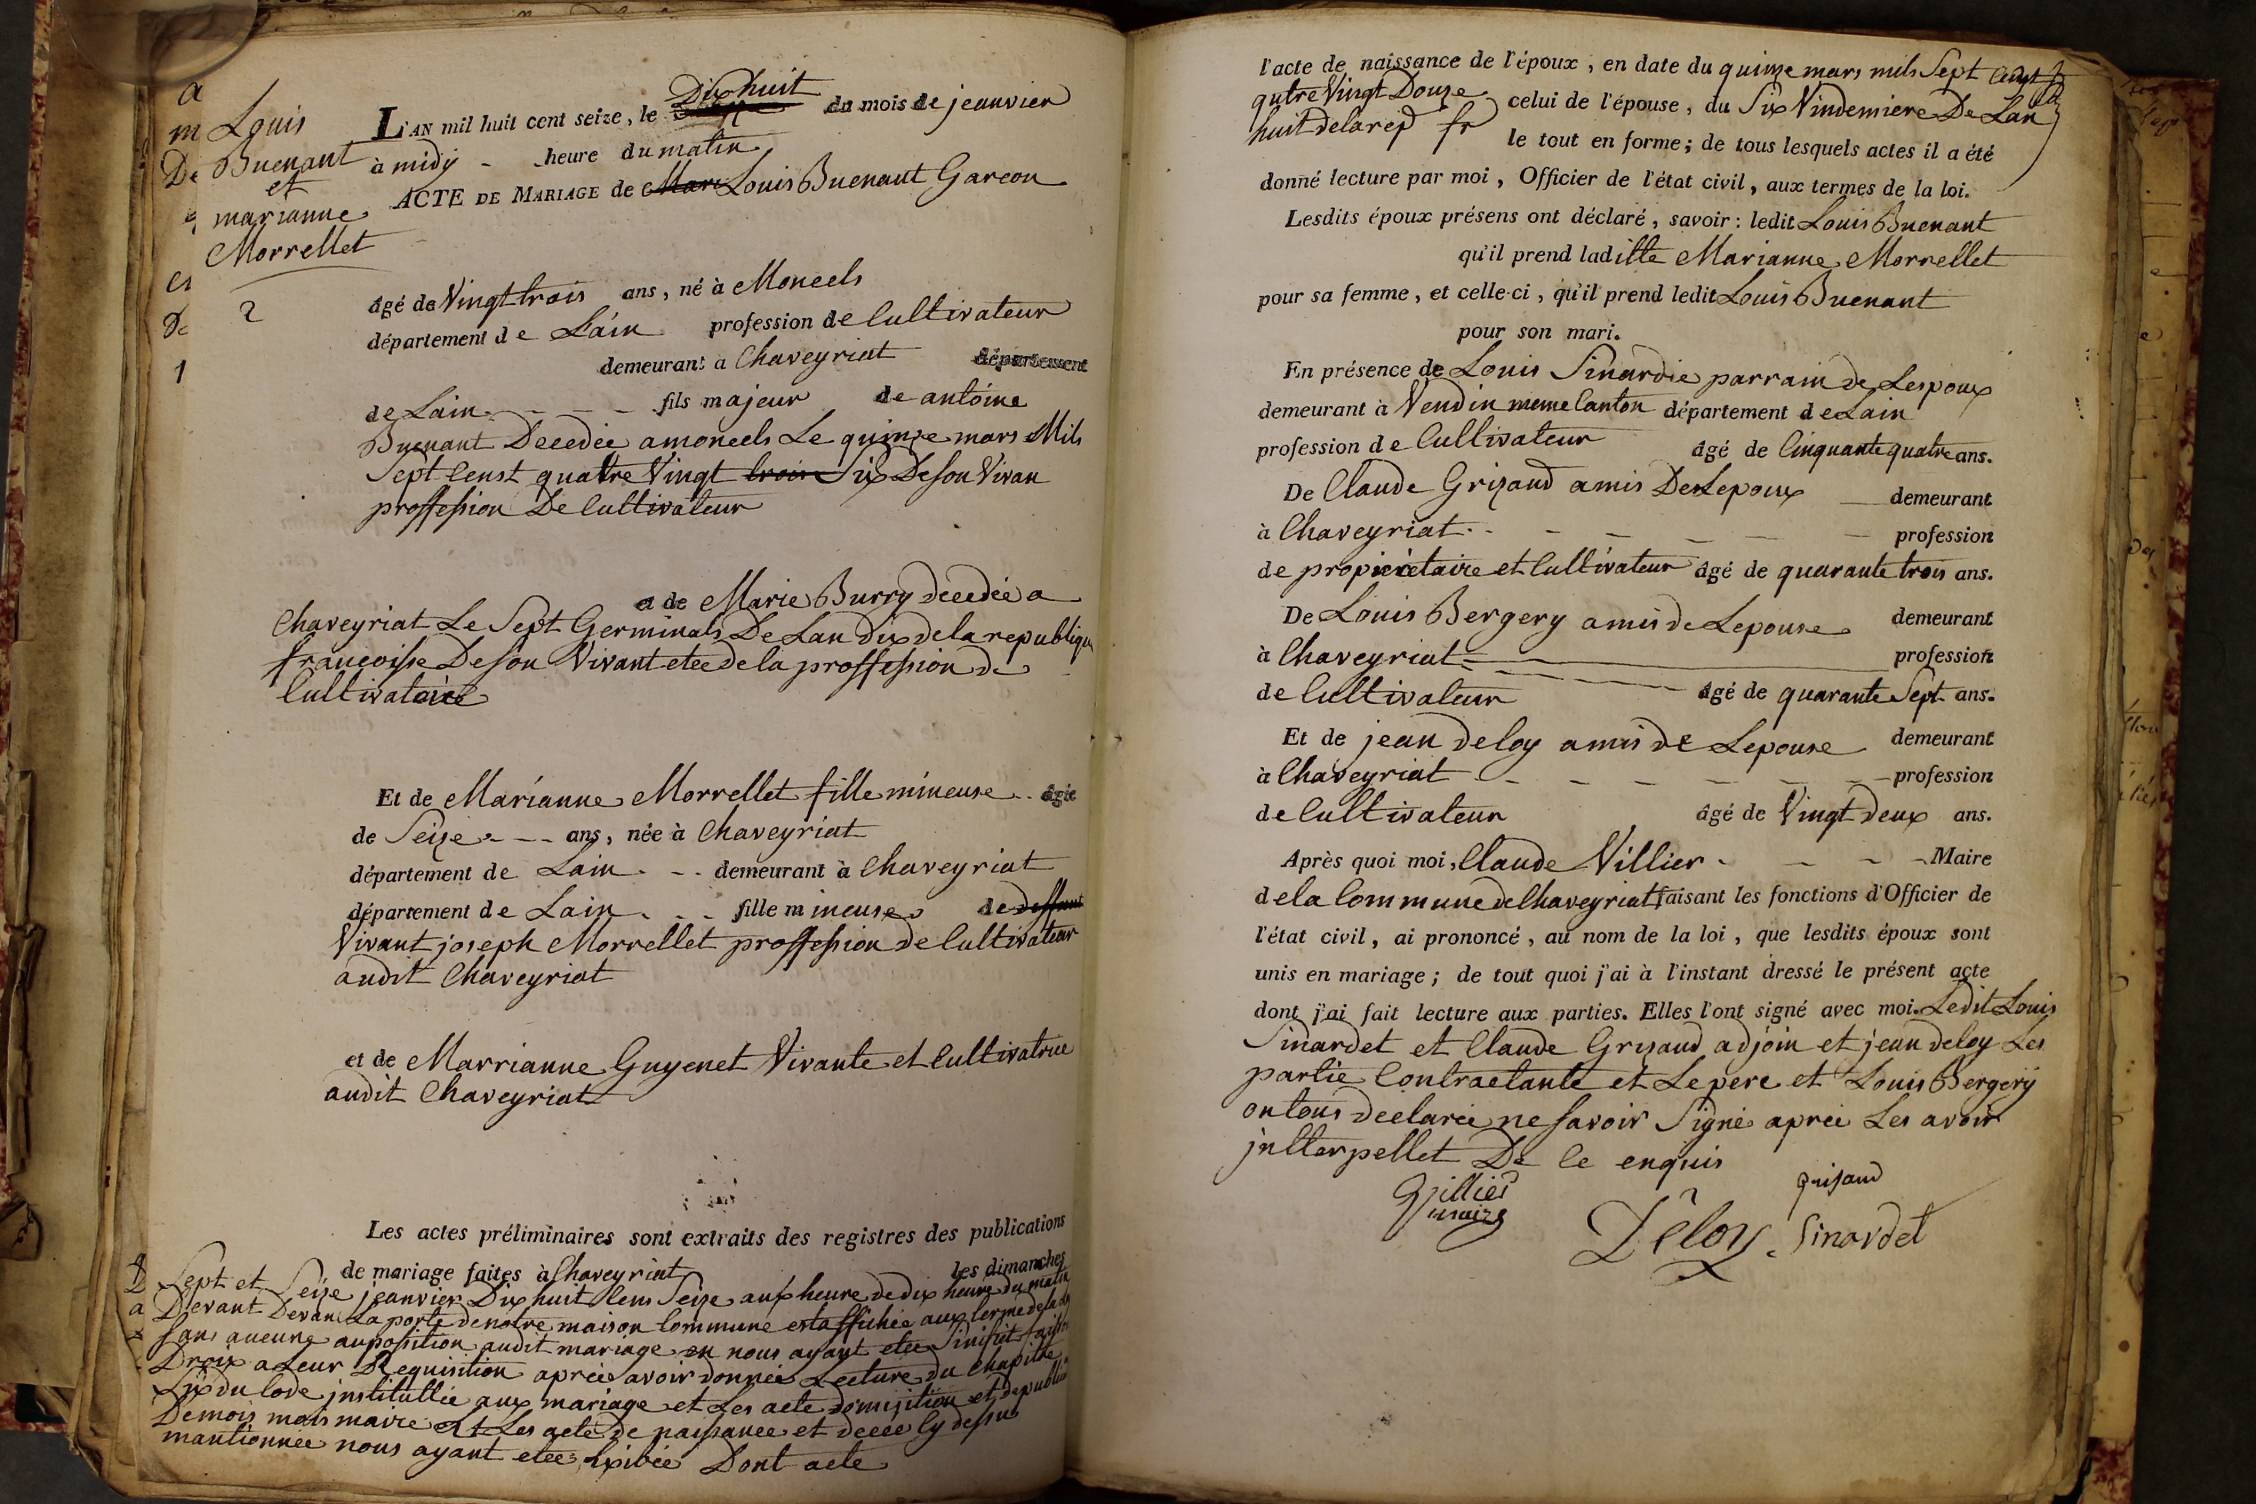 Louis
Buenant
et
marianne
Morrellet
2
L'AN mil huit cent seize, le Dix huit du mois de jeanvier
à midy - heure du matin
ACTE DE MARIAGE de Mari Louis Buenant Garcon
âgé de Vingt trois ans, né à Moncels
département de Lain profession de Cultivateur
demeurant a Chaveyriat département
de Lain - - - fils majeur de antoine
Buenant Decedée a moncels Le quinze mars Mils
Sept Censt quatre Vingt trois Six De son Vivan
proffession De Cultivateur
et de Marie Burry decedée a
Chaveyriat Le Sept Germinals De Lan dix de la republiqu
francoisse De son Vivant etee de la proffession de
Cultivatrice
Et de Marianne Morrellet fille mineuse - âgée
de Seize - - - ans, née à Chaveyriat
département de Lain - - demeurant à Chaveyriat
département de Lain - - fille mineuse de deffunt
Vivant joseph Morrellet proffession de Cultivateur
audit Chaveyriat
et de Marrianne Guyenet Vivante et Cultivatrice
audit Chaveyriat
Les actes préliminaires sont extraits des registres des publications
de mariage faites à Chaveyriat les dimanches
Sept et Seize jeanvier Dix huit Cens Seize aux heure de dix heure du matin
Devant Devan La porte de notre maison Commune est affichée aux terme de la
sans aucune auposition audit mariage en nous ayant etee
Droix a Leur Requisition aprée avoir donnée Lecture du Chapitre
Six du Code instituttée aux mariage et Les acte et de
Demois mois mairie et Les acte de naissance et decee Cy dessus
mantionnée nous ayant etee Exibée Dont acte
l'acte de naissance de l'époux, en date du quinze mars mils Sept Cent
qutre Vingt Douze celui de l'épouse, du Six Vindemiere De Lan
huit de la rep fr le tout en forme; de tous lesquels actes il a été
donné lecture par moi, Officier de l'état civil, aux termes de la loi.
Lesdits époux présens ont déclaré, savoir: ledit Louis Buenant
qu'il prend laditte Marianne Morrellet
pour sa femme, et celle-ci, qu'il prend ledit Louis Buenant
pour son mari.
En présence de Louis Sinardie parrain de Lespoux
demeurant à Vendin meme Canton département de Lain
profession de Cultivateur âgé de Cinquante quatre ans.
De Claude Grizaud amis De Lepoux demeurant
à Chaveyriat - - - - - - profession
de propierétaire et Cultivateur âgé de quarante trois ans.
De Louis Bergery amis de Lepouse demeurant
à Chaveyriat profession
de Cultivateur âgé de quarante Sept ans.
Et de jean deloy amis de Lepouse demeurant
à Chaveyriat - - - - - - profession
de Cultivateur âgé de Vingt deux ans.
Après quoi moi, Claude Villier - - - - Maire
de la Commune de Chaveyriat faisant les fonctions d'Officier de
l'état civil, ai prononcé, au nom de la loi, que lesdits époux sont
unis en mariage; de tout quoi j'ai à l'instant dressé le présent acte
dont j'ai fait lecture aux parties. Elles l'ont signé avec moi. Ledit Louis
Sinardet et Claude Grizaud adjoin et jean deloy Les
partie Contractante et Le pere et Louis Bergery
on tous declarée ne savoir Signé aprée Les avoir
jntterpellet De Ce enquis
Villier
maire
grisaud
Déloy
Sinardet